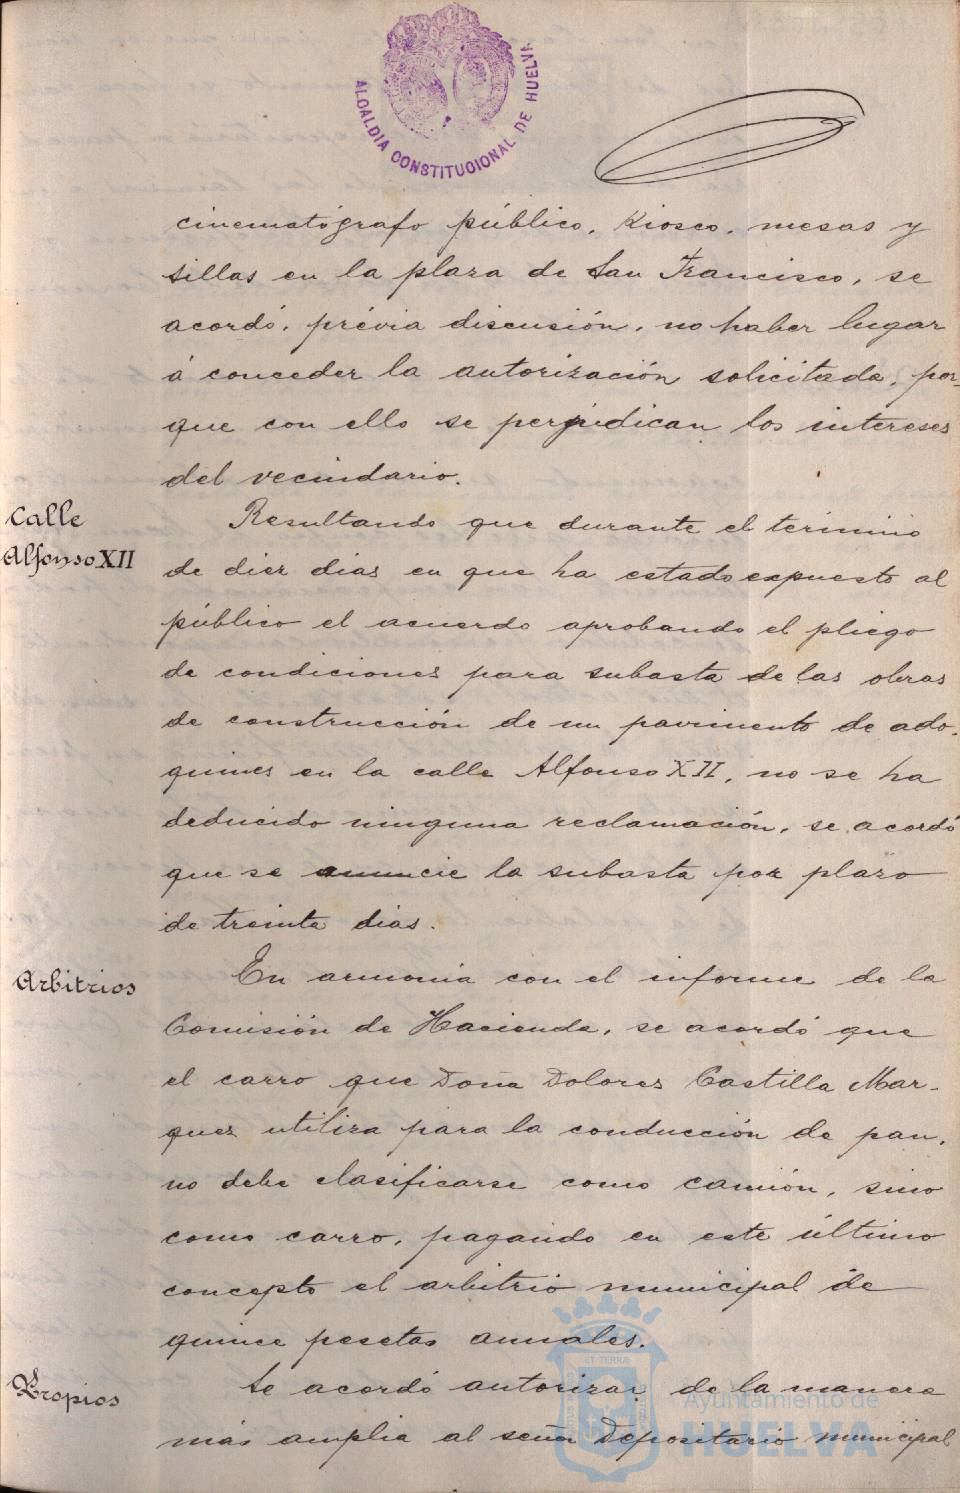 ALCALDIA CONSTITUCIONAL DE HUELVA
cinematógrafo público, Kiosco, mesas y
sillas en la plaza de San Francisco, se
acordó, prévia discusión, no haber lugar
á conceder la autorización solicitada, por-
que con ello se perjudican los intereses
del vecindario.
Calle
Alfonso XII
Resultando que durante el termino
de diez dias en que ha estado expuesto al
público el acuerdo aprobando el pliego
de condiciones para subasta de las obras
de construcción de un pavimento de ado-
quines en la calle Alfonso XII, no se ha
deducido ninguna reclamación, se acordó
que se anuncie la subasta por plazo
de treinta dias.
Arbitrios
En armonia con el informe de la
Comisión de Hacienda, se acordó que
el carro que Doña Dolores Castilla Mar-
quez utiliza para la conducción de pan,
no debe clasificarse como camión, sino
como carro, pagando en este último
concepto el arbitrio municipal de
quince pesetas anuales.
Propios
Se acordó autorizar de la manera
más amplia al señor Depositario municipal
ET TERRA
Ayuntamiento de
HUELVA